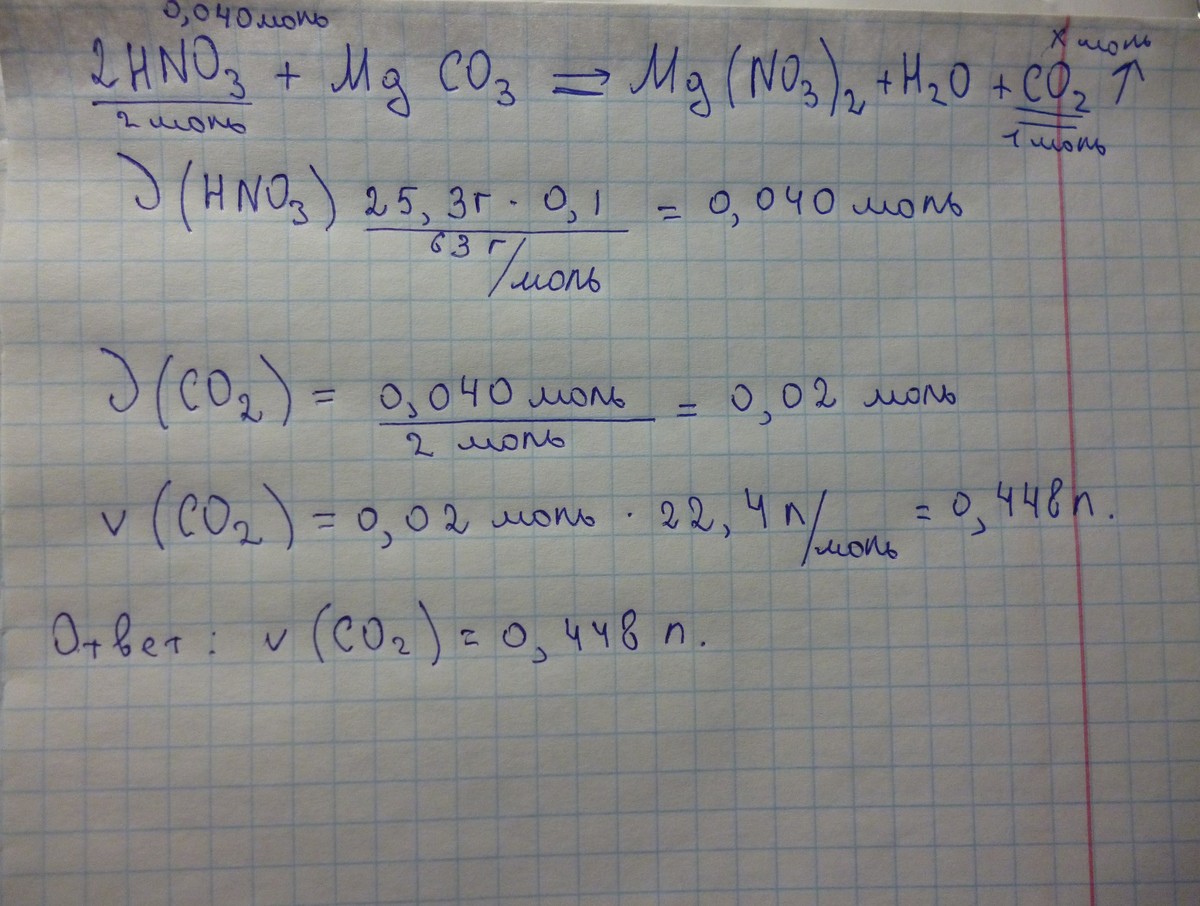 0,040 моль
x моль
2HNO₃ + MgCO₃ ⇒ Mg(NO₃)₂ + H₂O + CO₂ ↑
2 моль
1 моль
ν(HNO₃) 25,3г · 0,1 = 0,040 моль
63 г/моль
ν(CO₂) = 0,040 моль = 0,02 моль
2 моль
v(CO₂) = 0,02 моль · 22,4 л/моль = 0,448 л.
Ответ: v(CO₂) = 0,448 л.